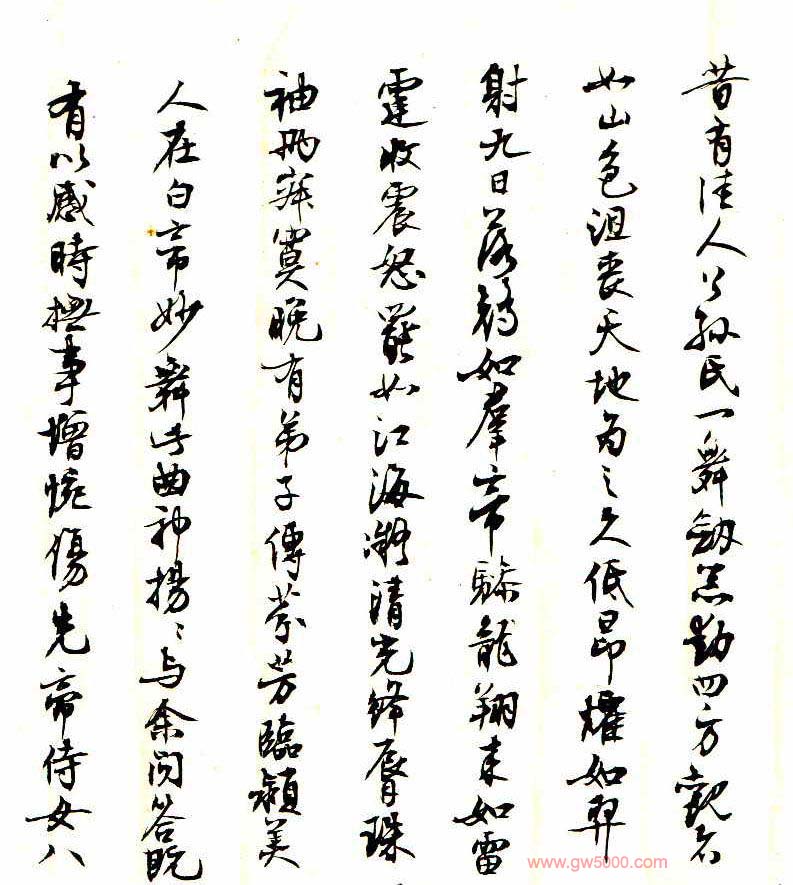 昔有佳人公孫氏一舞劍器動四方觀者
如山色沮喪天地為之久低昂燿如羿
射九日落矯如羣帝驂龍翔来如雷
霆收震怒罷如江海凝清光絳脣珠
袖兩寂寞晚有弟子傳芬芳臨潁美
人在白帝妙舞此曲神揚々与余問答既
有以感時撫事增惋傷先帝侍女八
www.gw5000.com